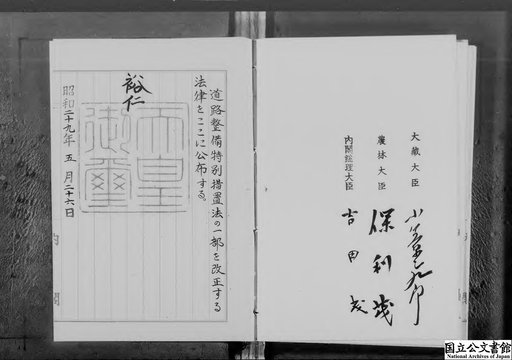 大蔵大臣 小笠原三九郎
農林大臣 保利茂
内閣総理大臣 吉田茂
道路整備特別措置法の一部を改正する
法律をここに公布する。
裕仁
天皇
御璽
昭和二十九年五月二十六日
国立公文書館
National Archives of Japan